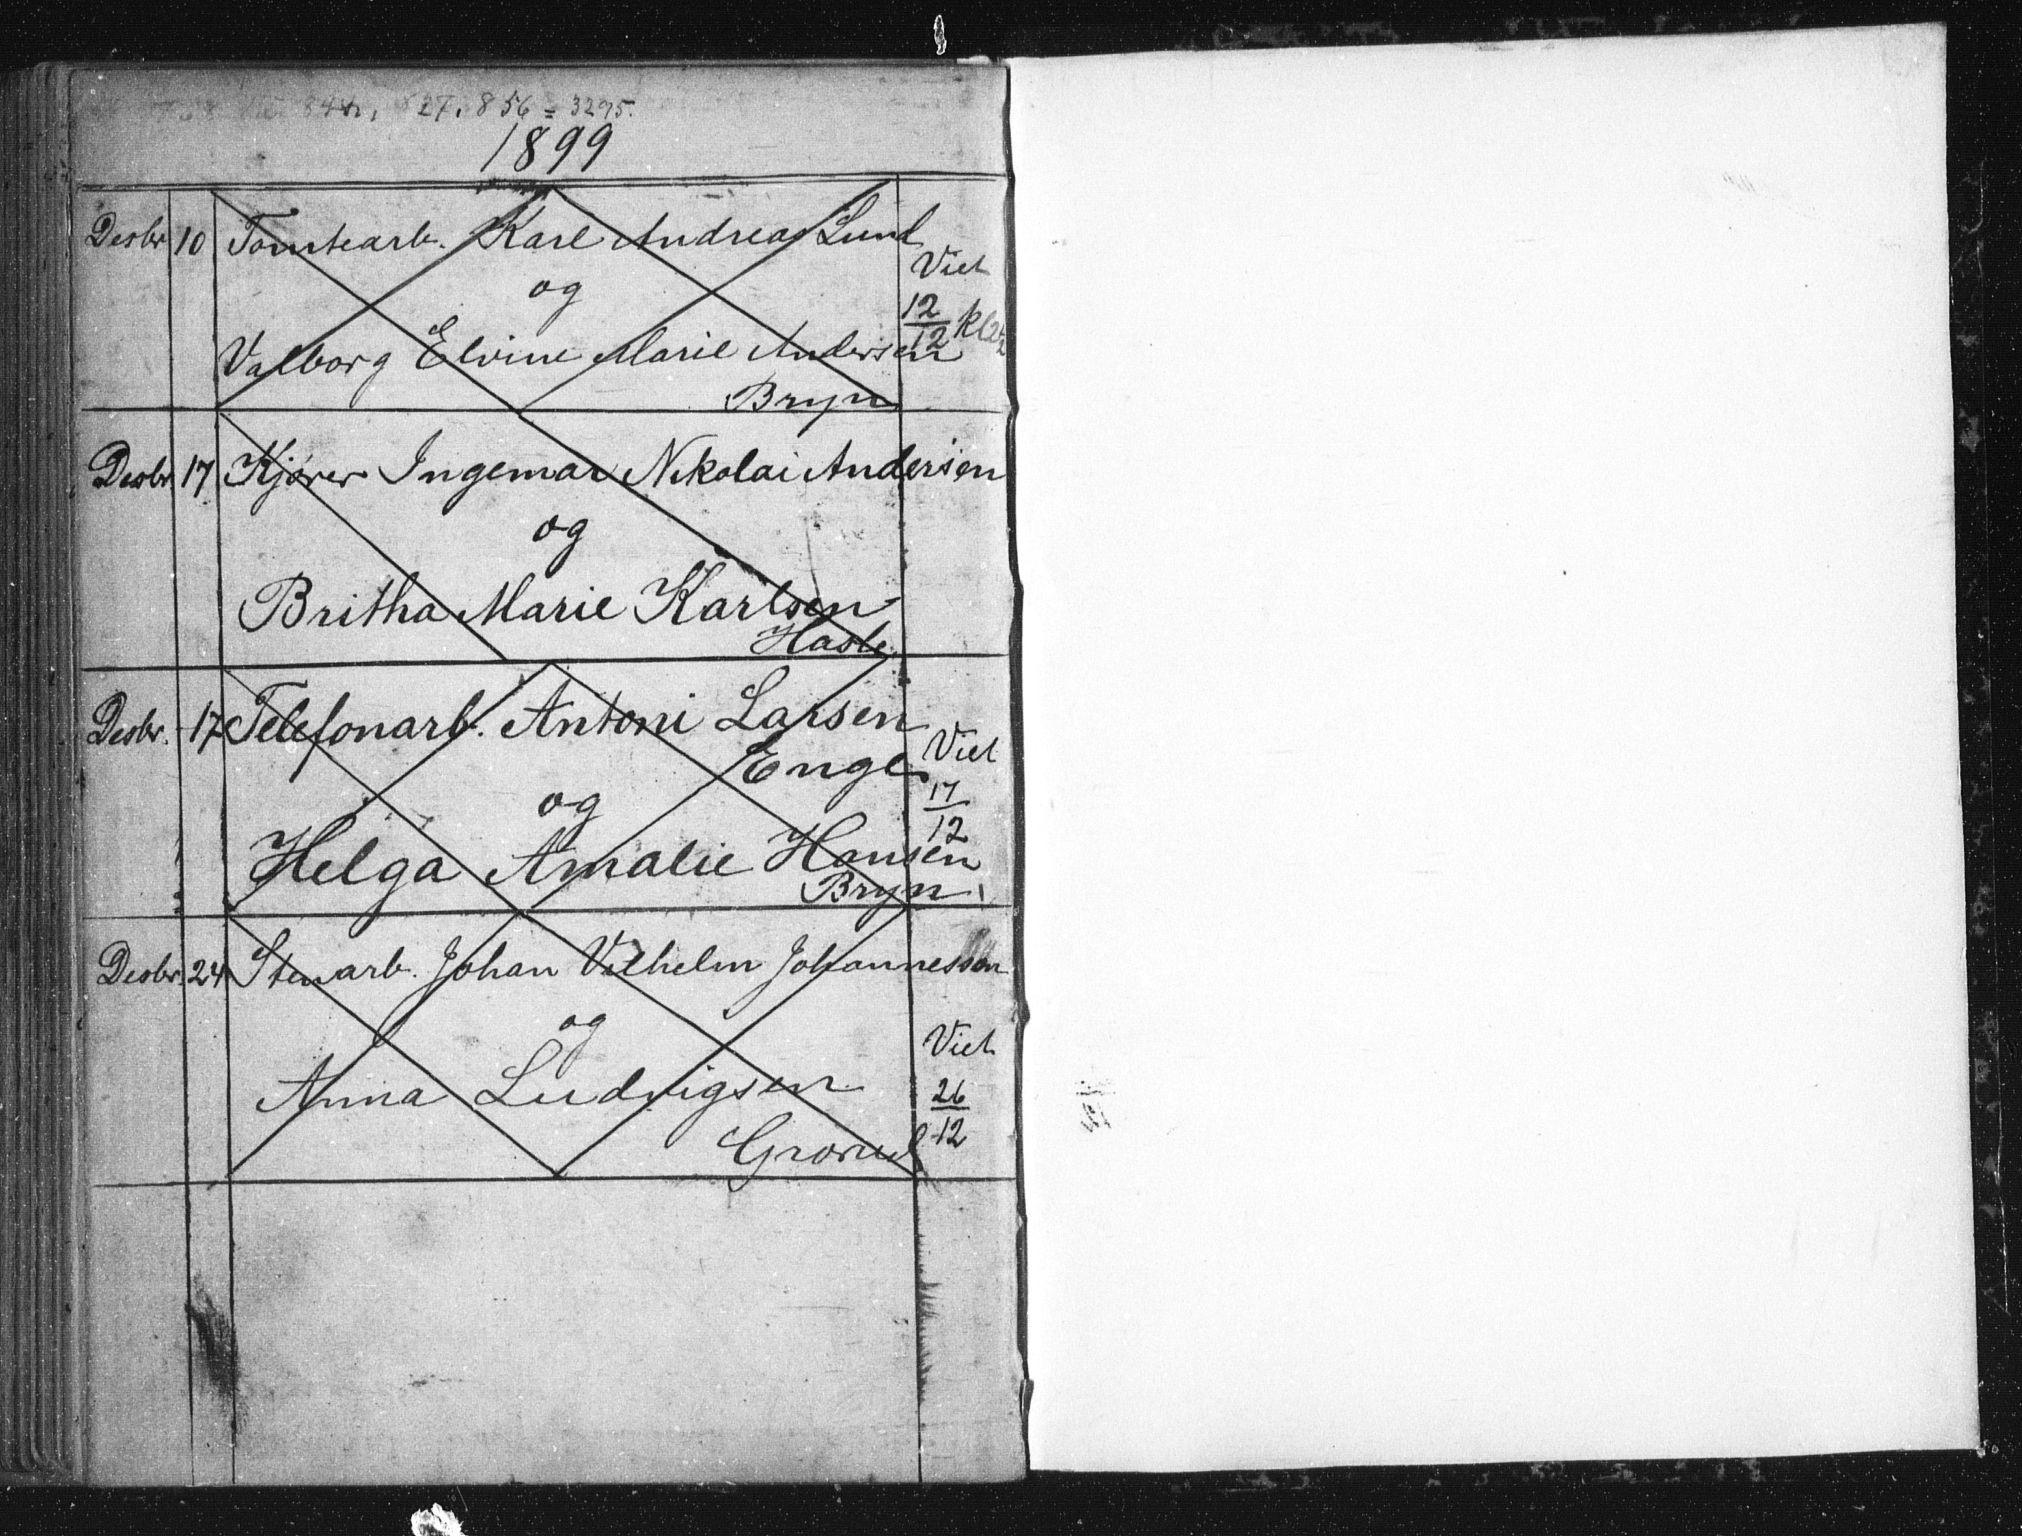 27. 856 = 3295.
1899
Desbr 10 Tomtearb. Karl Andreas Lund
og
Valborg Elvine Marie Andersen
Bryn
Viet
12/12 kl
Desbr. 17 Kjører Ingemar Nikolai Andersen
og
Britha Marie Karlsen
Hasle
Desbr. 17 Telefonarb. Antoni Larsen
Enge
og
Helga Amalie Hansen
Bryn
Viet
17/12
Desbr. 24 Stenarb. Johan Vilhelm Johannessen
og
Anna Ludvigsen
Grorud
Viet
26/12